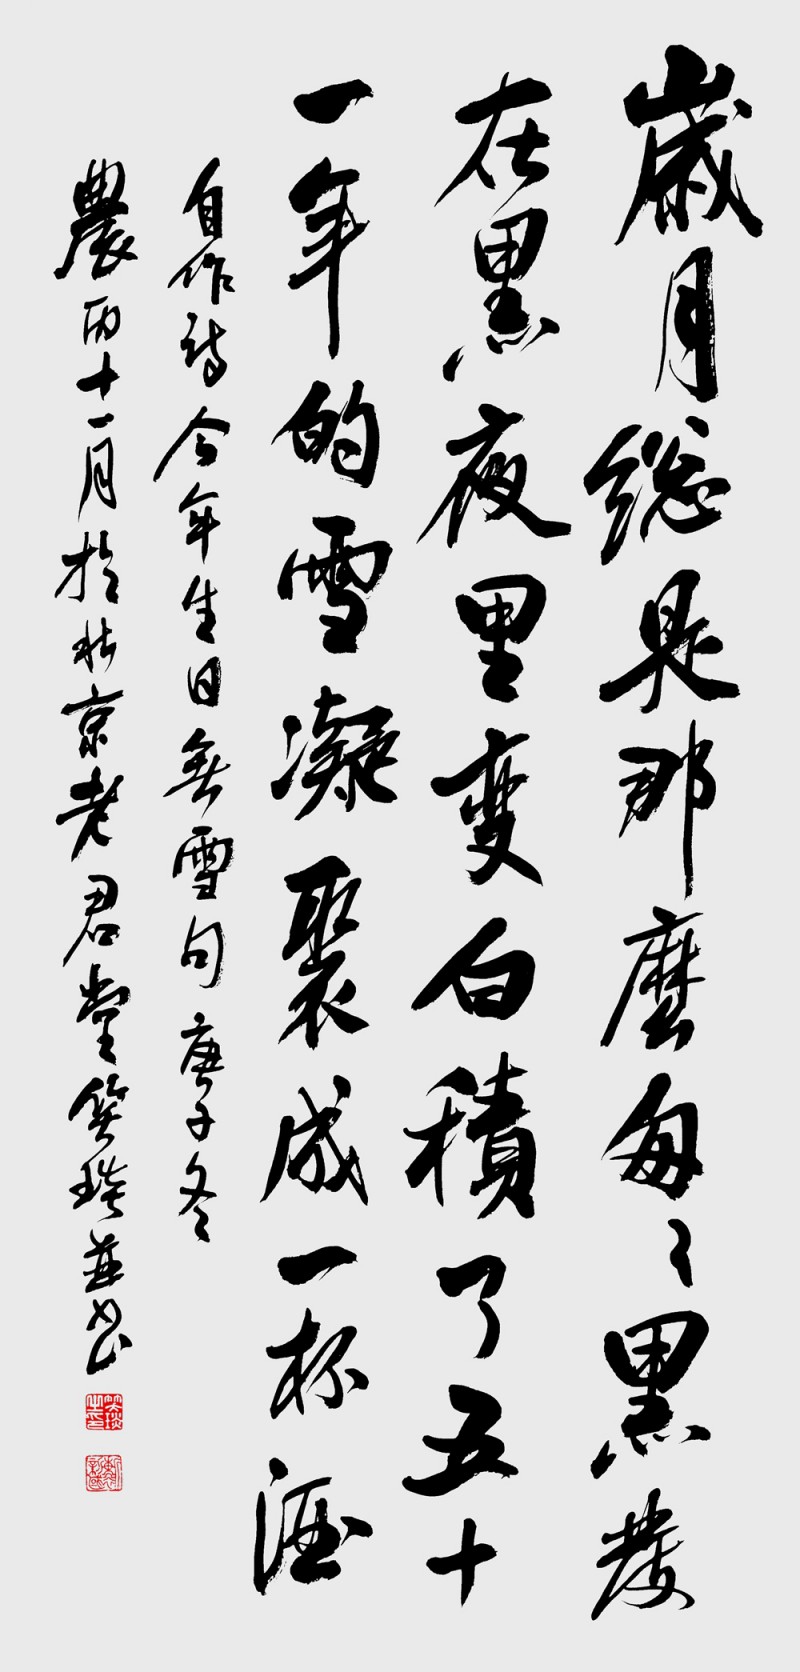 歲月總是那麼匆々黑髮
在黑夜里变白積了五十
一年的雪凝聚成一杯酒
自作詩今年生日無雪句庚子冬
農历十一月於北京老君堂笑琰並書